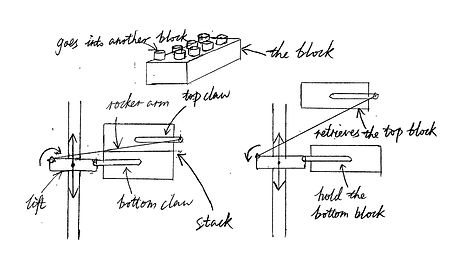 goes into another block
the block
rocker arm
top claw
retrieves the top block
lift
bottom claw
stack
hold the
bottom block